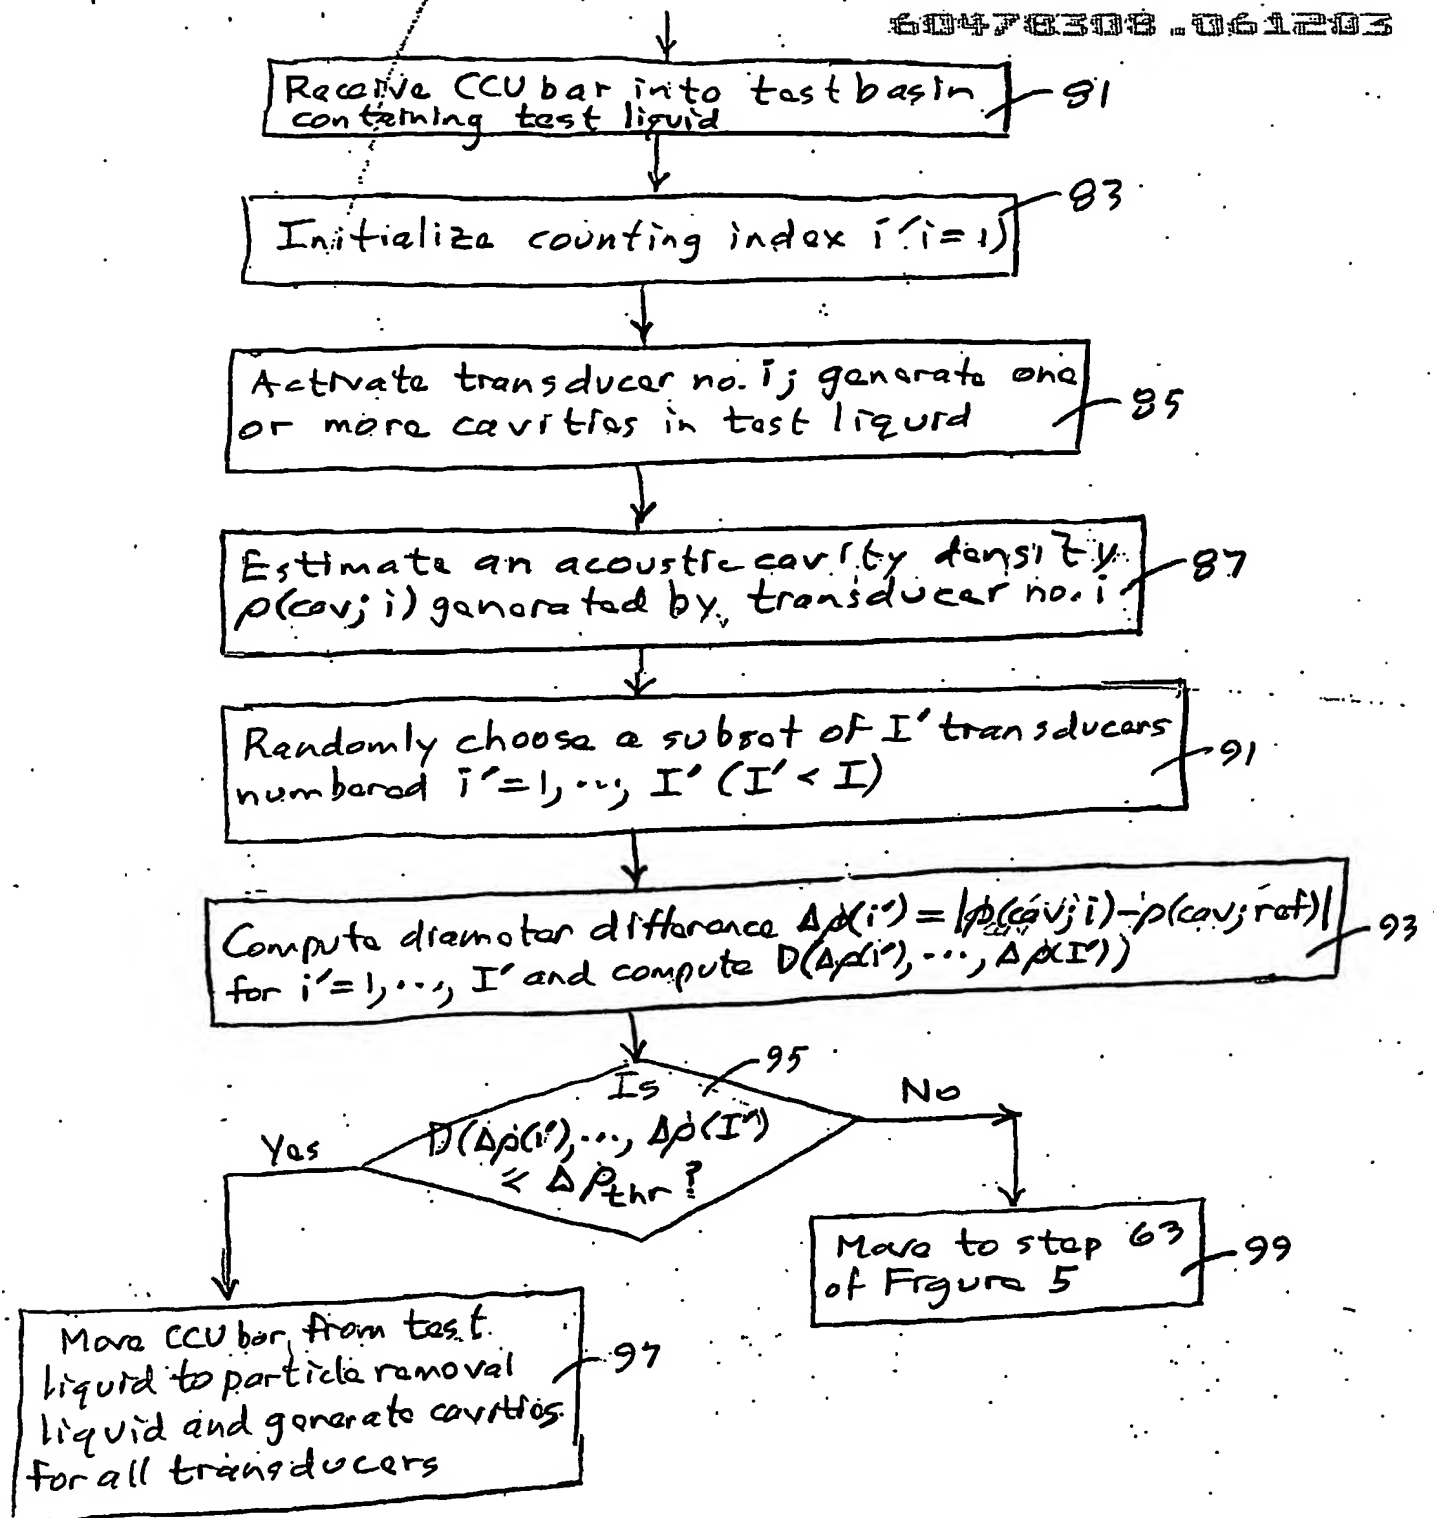 60478308.061203
Receive CCU bar into test basin
containing test liquid
81
83
Initialize counting index i (i=1)
Activate transducer no. i; generate one
or more cavities in test liquid
85
Estimate an acoustic cavity density
ρ(cav; i) generated by transducer no. i
87
Randomly choose a subset of I' transducers
numbered i'=1, ..., I' (I' < I)
91
Compute diameter difference Δρ(i') = |ρ(cav; i)-ρ(cav; ref)|
for i'=1, ..., I' and compute D(Δρ(i'), ..., Δρ(I'))
93
95
Is
D(Δρ(i'), ..., Δρ(I')
≤ Δρthr ?
Yes
No
Move to step 63
of Figure 5
99
Move CCU bar from test
liquid to particle removal
liquid and generate cavities
for all transducers
97